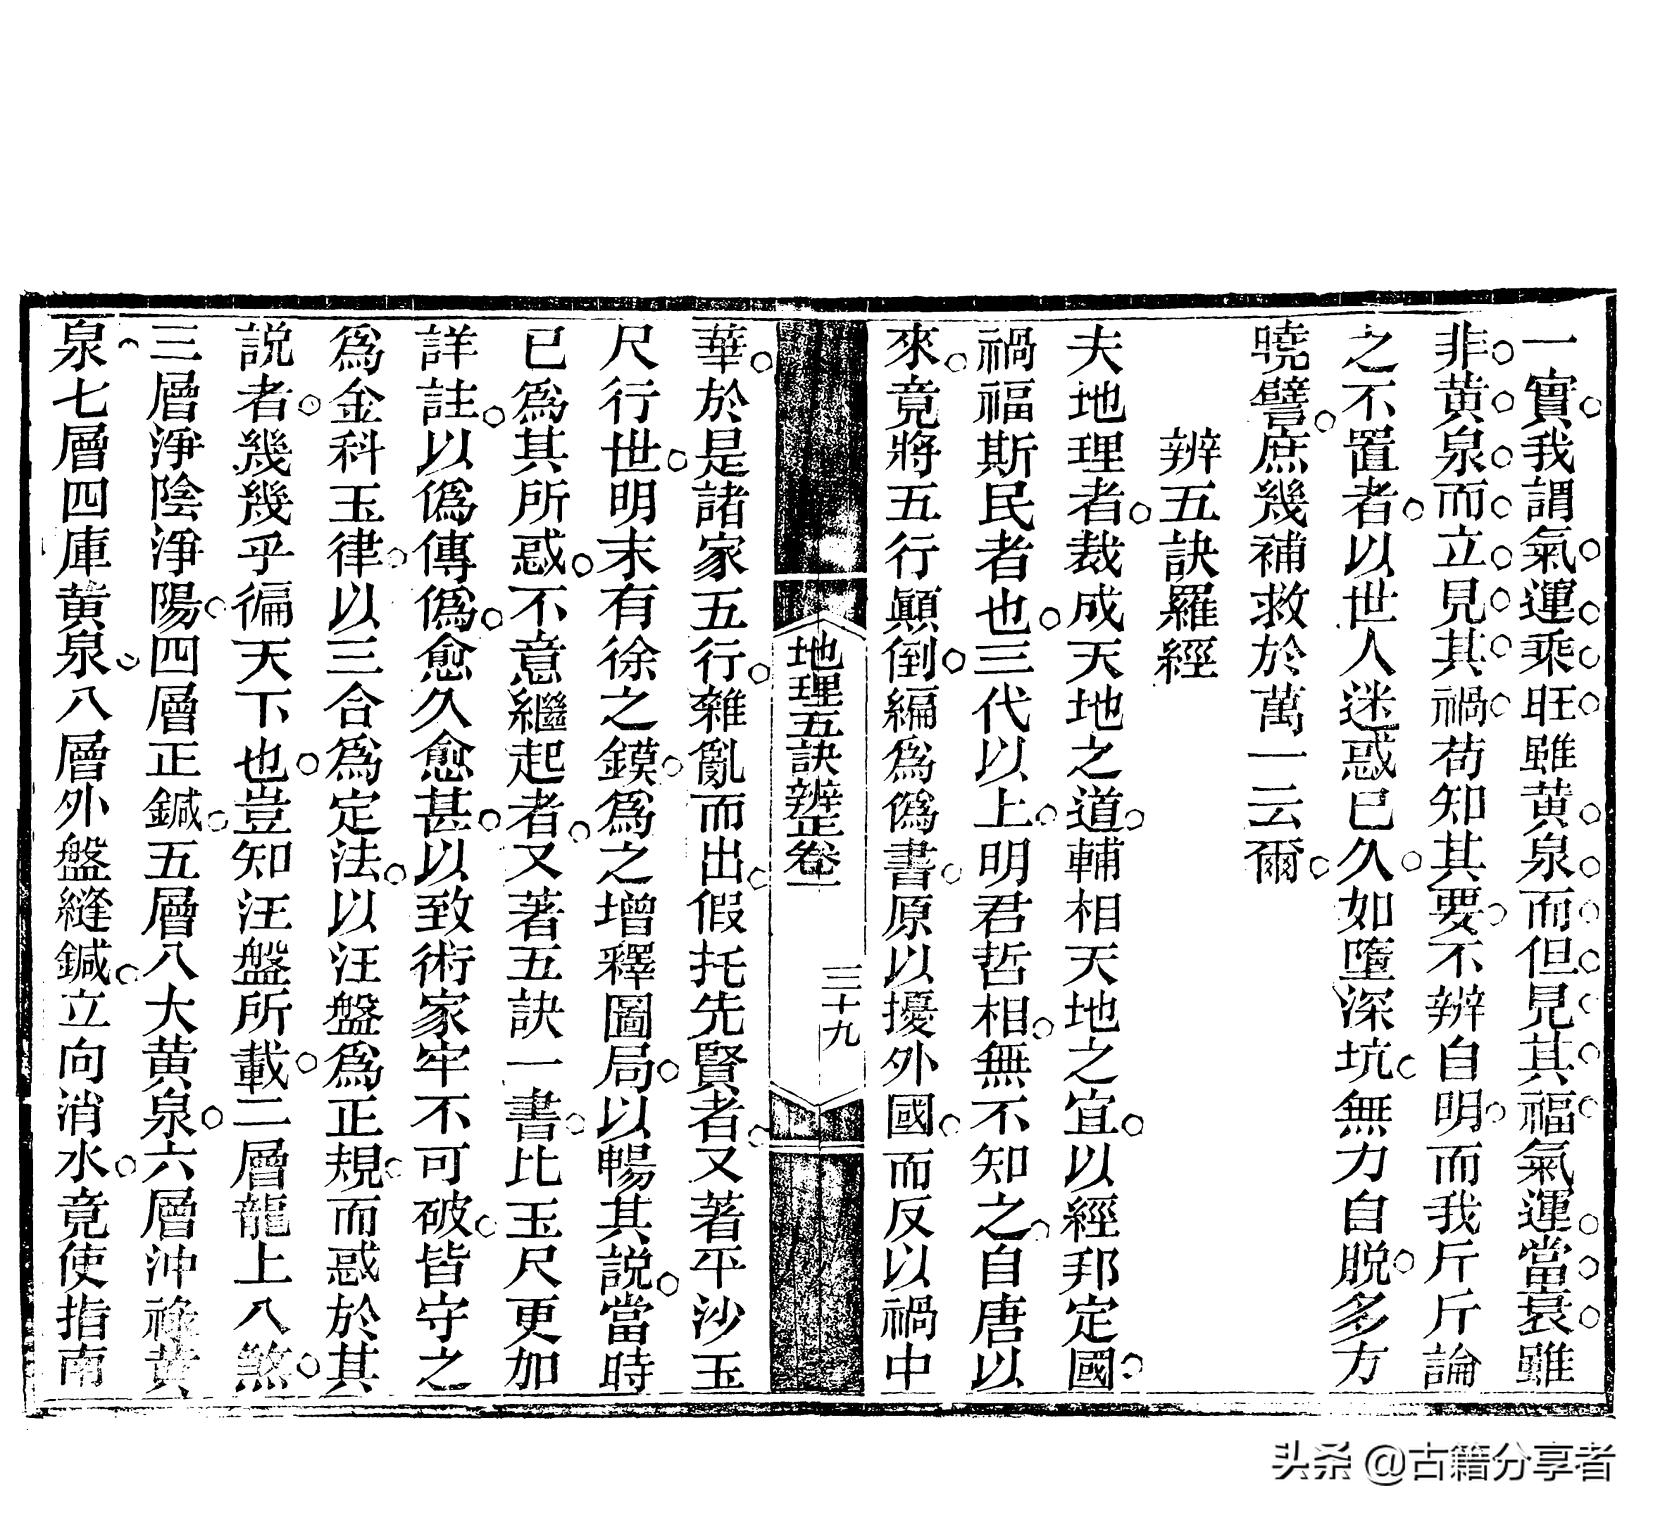 一實我謂氣運乘旺雖黄泉而但見其福氣運當衰雖
非黄泉而立見其禍苟知其要不辨自明而我斤斤論
之不置者以世人迷惑已久如墮深坑無力自脱多方
曉譬庶幾補救於萬一云爾
辨五訣羅經
夫地理者裁成天地之道輔相天地之宜以經邦定國
禍福斯民者也三代以上明君哲相無不知之自唐以
來竟將五行顚倒編爲僞書原以擾外國而反以禍中
地理五訣辨正卷一
三十九
華於是諸家五行雜亂而出假托先賢者又著平沙玉
尺行世明末有徐之鏌爲之增釋圖局以暢其説當時
已爲其所惑不意繼起者又著五訣一書比玉尺更加
詳註以僞傳僞愈久愈甚以致術家牢不可破皆守之
爲金科玉律以三合爲定法以汪盤爲正規而惑於其
説者幾幾乎徧天下也豈知汪盤所載二層龍上八煞
三層淨陰淨陽四層正鍼五層八大黄泉六層沖祿黄
泉七層四庫黄泉八層外盤縫鍼立向消水竟使指南
头条 @古籍分享者